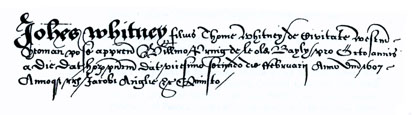 Johēs Whitney filius Thome Whitney de Civitate Westm̄
yoman po: se appren Willmo Pring de le ole Bayly pro Octo annis
a die dat hoꝝ prēm dat vicesimo secundo die ffebruarij Anno dn̄i 1607
Annoqꝫ rꝝ Jacobi Anglie &c Quinto